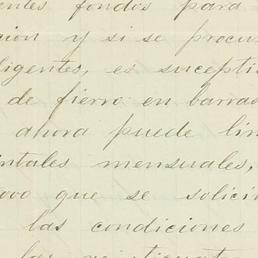 entes fondos para
cion y si se procu
ligentes, es suscepti
de fierro en barras
ahora puede lim
intales mensuales,
ovo que se solici
las condiciones